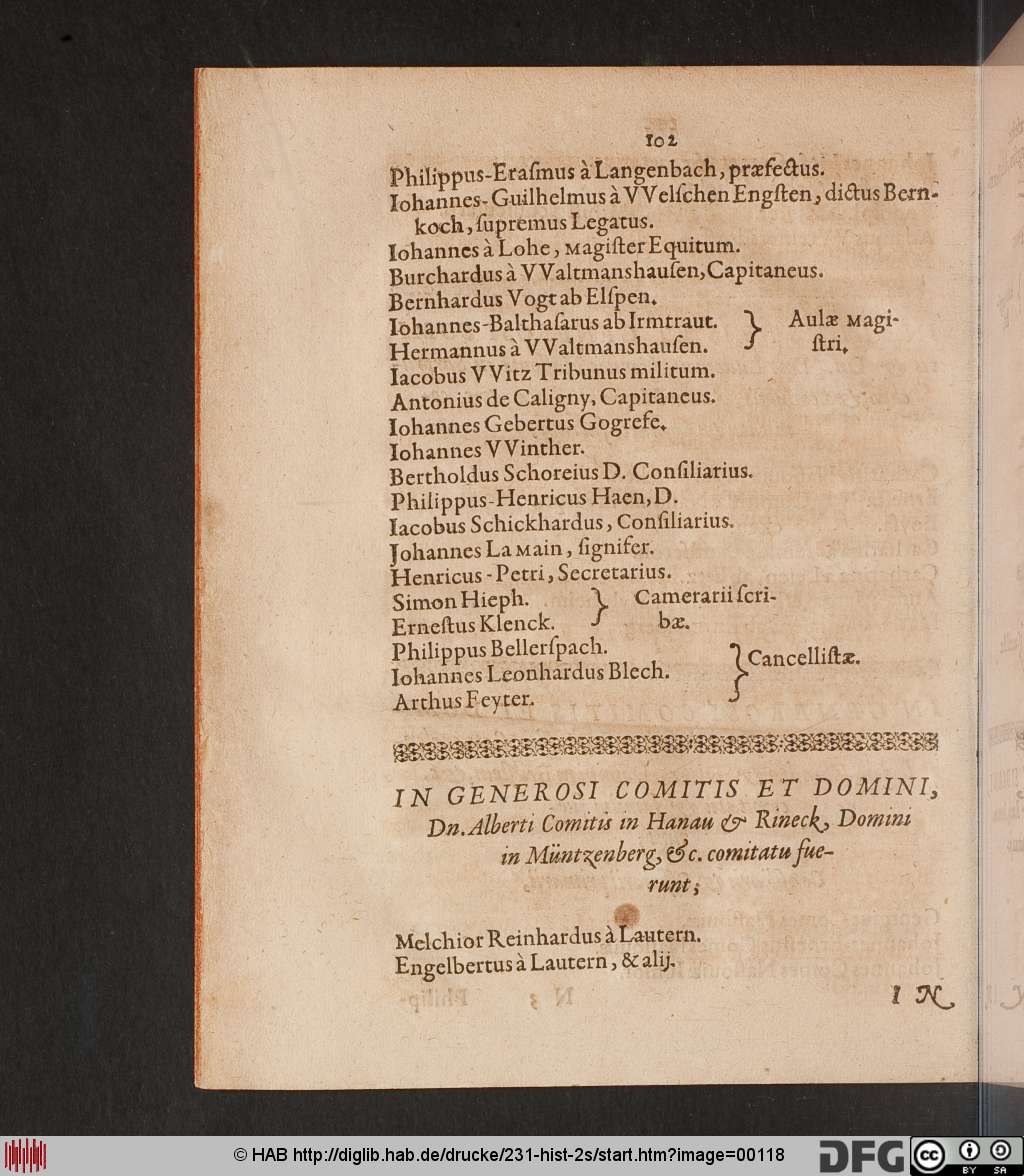 102
Philippus-Eraſmus à Langenbach, præfectus.
Iohannes-Guilhelmus à VVelſchen Engſten, dictus Bern-
koch, ſupremus Legatus.
Iohannes à Lohe, Magiſter Equitum.
Burchardus à VValtmanshauſen, Capitaneus.
Bernhardus Vogt ab Elſpen.
Iohannes-Balthaſarus ab Irmtraut. } Aulæ Magi-
Hermannus à VValtmanshauſen. ſtri.
Iacobus VVitz Tribunus militum.
Antonius de Caligny, Capitaneus.
Iohannes Gebertus Gogrefe.
Iohannes VVinther.
Bertholdus Schoreius D. Conſiliarius.
Philippus-Henricus Haen, D.
Iacobus Schickhardus, Conſiliarius.
Johannes La Main, ſignifer.
Henricus-Petri, Secretarius.
Simon Hieph. } Camerarii ſcri-
Erneſtus Klenck. bæ.
Philippus Bellerſpach.
Iohannes Leonhardus Blech. } Cancelliſtæ.
Arthus Feyter.
IN GENEROSI COMITIS ET DOMINI,
Dn. Alberti Comitis in Hanau & Rineck, Domini
in Müntzenberg, &c. comitatu fue-
runt;
Melchior Reinhardus à Lautern.
Engelbertus à Lautern, & alij.
IN
© HAB http://diglib.hab.de/drucke/231-hist-2s/start.htm?image=00118
DFG
cc
BY SA